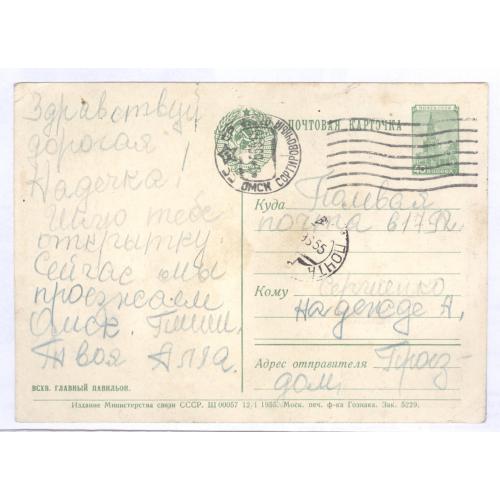 Здравствуй
дорогая
Надечка!
Шлю тебе
открытку.
Сейчас мы
проезжаем
Омск. Пиши.
Твоя Алла.
ВСХВ. ГЛАВНЫЙ ПАВИЛЬОН.
ПОЧТОВАЯ КАРТОЧКА
ПОЧТА СССР
40 КОПЕЕК
ОМСК СОРТИРОВОЧ
СССР
Куда
почта в/ч
ПОЧТА
55
Кому Сергиенко
Надежде А,
Адрес отправителя Проез-
дом,
Издание Министерства связи СССР. Ш 00057 12/I 1955. Моск. печ. ф-ка Гознака. Зак. 5229.